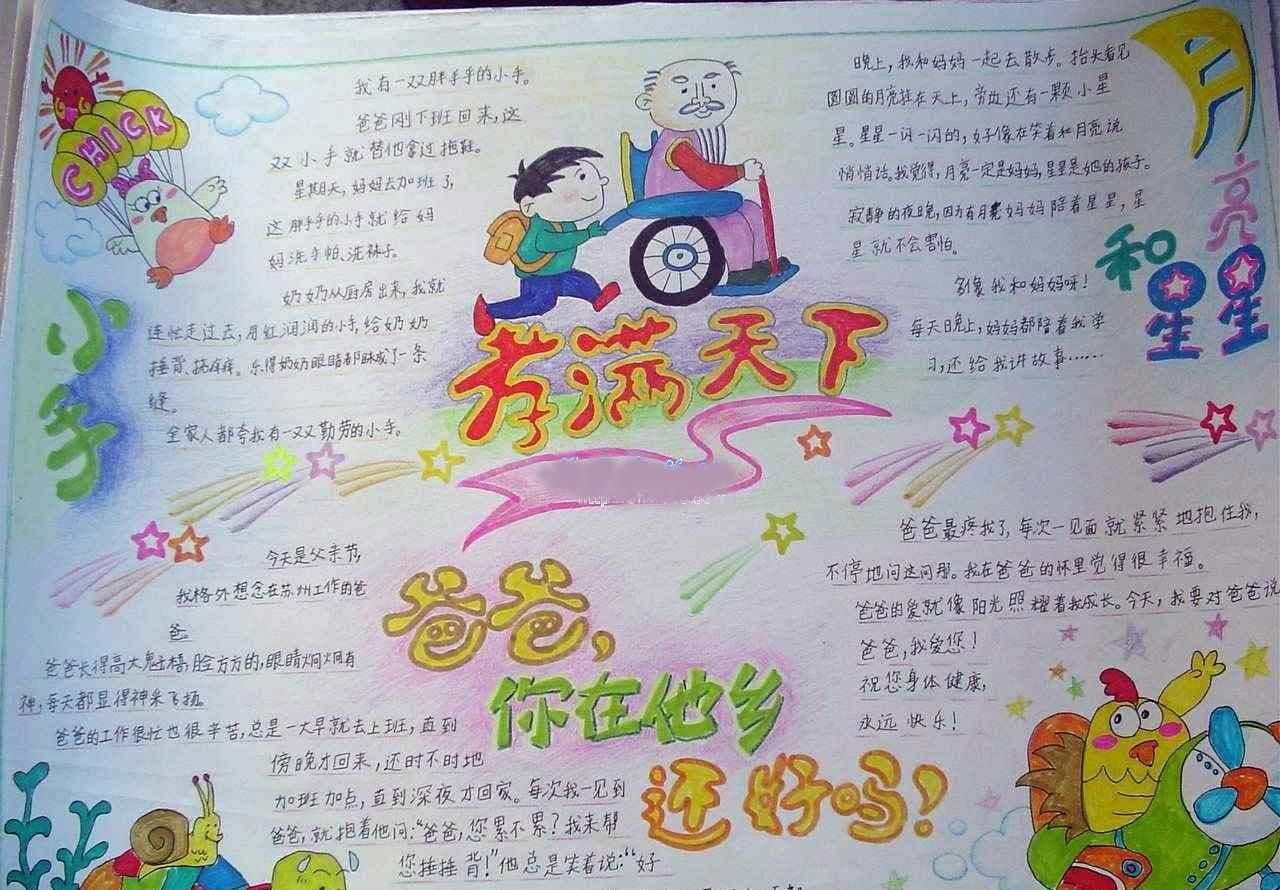 CHICK
小手
我有一双胖乎乎的小手。
爸爸刚下班回来，这
双小手就替他拿过拖鞋。
星期天，妈妈去加班了，
这胖乎乎的小手就给妈
妈洗手帕、洗袜子。
奶奶从厨房出来，我就
连忙走过去，用红润润的小手，给奶奶
捶背、挠痒痒。乐得奶奶眼睛都眯成了一条
缝。
全家人都夸我有一双勤劳的小手。
孝满天下
月亮和星星
晚上，我和妈妈一起去散步。抬头看见
圆圆的月亮挂在天上，旁边还有一颗小星
星。星星一闪一闪的，好像在笑着和月亮说
悄悄话。我觉得，月亮一定是妈妈，星星是她的孩子。
寂静的夜晚，因为有月亮妈妈陪着星星，星
星就不会害怕。
多像我和妈妈呀！
每天晚上，妈妈都陪着我学
习，还给我讲故事……
爸爸，
你在他乡
还好吗？
今天是父亲节，
我格外想念在苏州工作的爸
爸。
爸爸长得高大魁梧，脸方方的，眼睛炯炯有
神，每天都显得神采飞扬。
爸爸的工作很忙也很辛苦，总是一大早就去上班，直到
傍晚才回来，还时不时地
加班加点，直到深夜才回家。每次我一见到
爸爸，就抱着他问：“爸爸，您累不累？我来帮
您捶捶背！”他总是笑着说：“好
爸爸最疼我了，每次一见面就紧紧地抱住我，
不停地问这问那。我在爸爸的怀里觉得很幸福。
爸爸的爱就像阳光照耀着我成长。今天，我要对爸爸说
爸爸，我爱您！
祝您身体健康，
永远快乐！